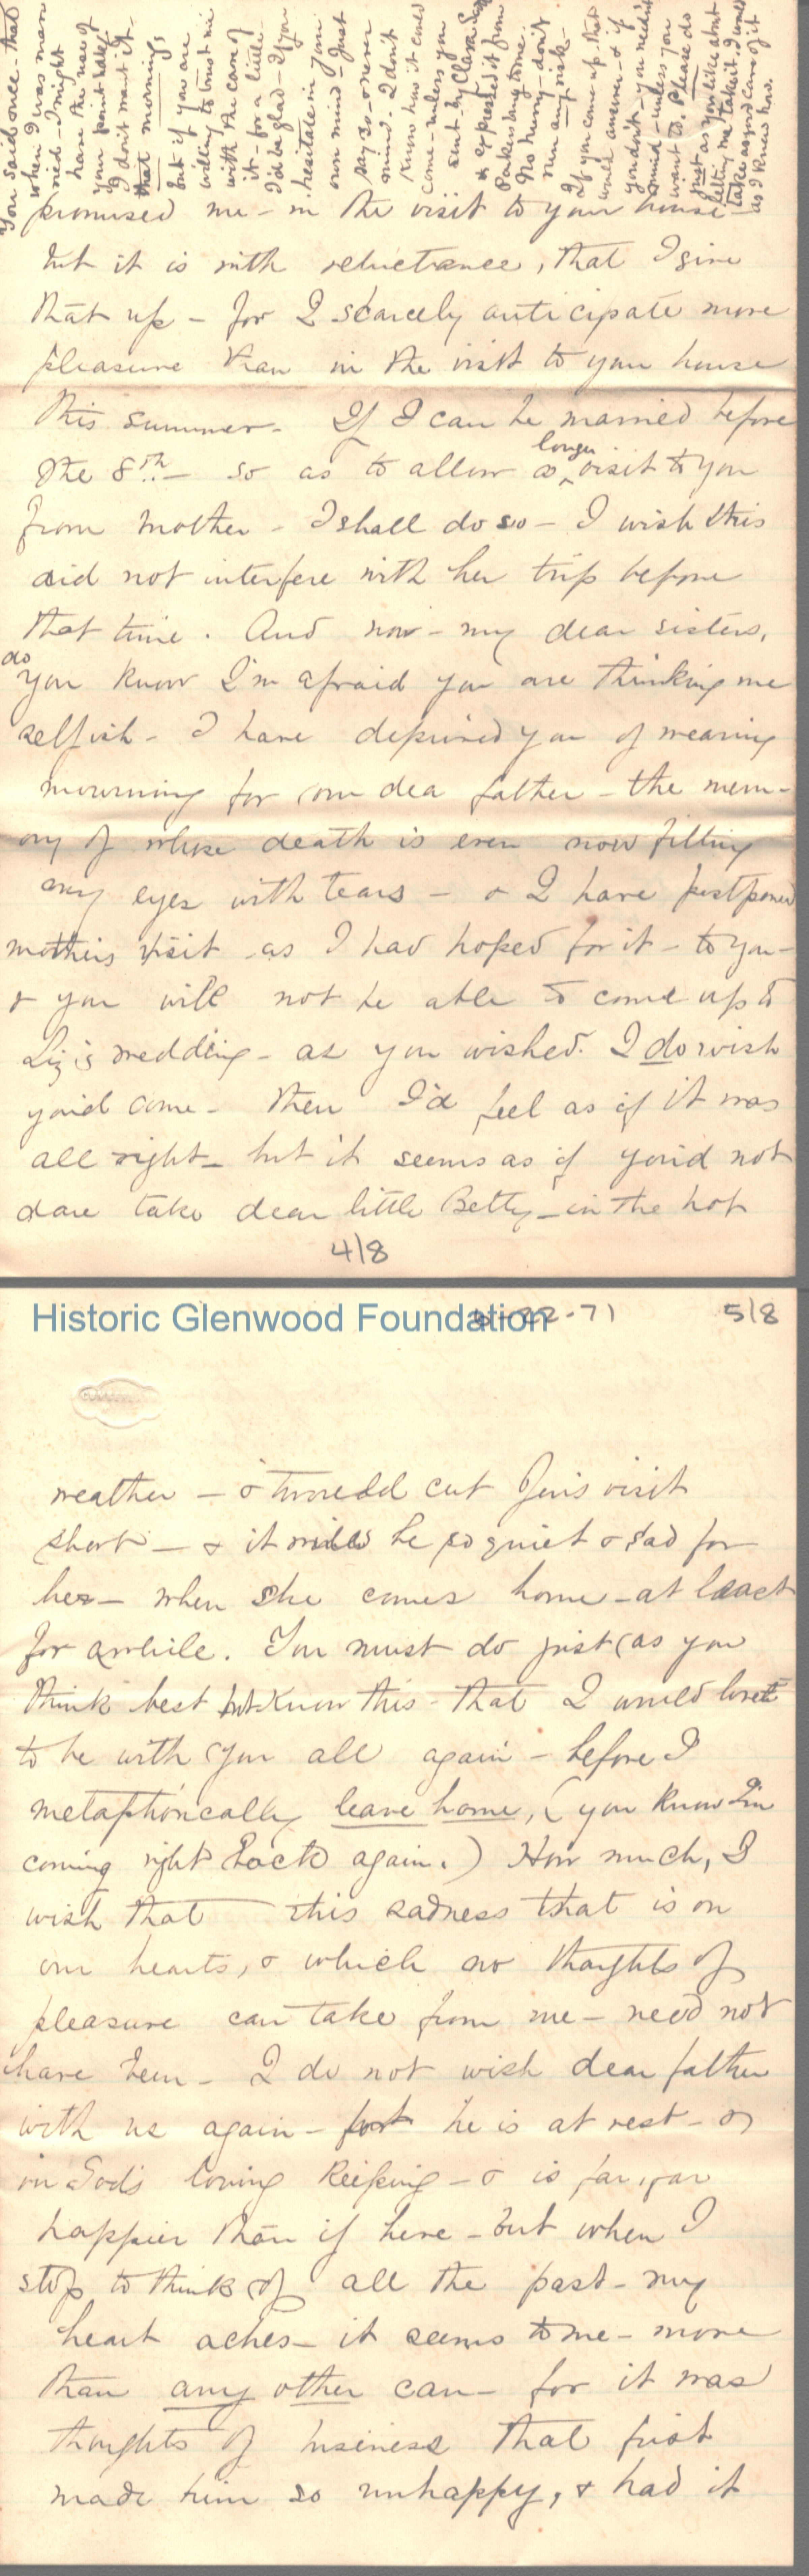 You said once - that
when I was mar
ried - I might
have the use of
your point lace.
I don't want it -
that morning,
but if you are
willing to trust me
with the care of
it - for a little -
I'd be glad - If you
hesitate in your
own mind - Just
say so - & never
mind. I don't
know how it could
come - unless you
sent - by Clara
or expressed it from
Parkersburg to me.
No hurry - don't
run any risk -
If you come up that
would answer - & if
you don't - you needn't
mind - unless you
want to. Please do
just as you like about
letting me take it. I would
take as good care of it
as I knew how.
promised me - in the visit to your house -
but it is with reluctance, that I give
that up - for I scarcely anticipate more
pleasure than in the visit to your house
this summer. If I can be married before
the 8th - so as to allow a longer visit to you
from mother - I shall do so - I wish this
did not interfere with her trip before
that time. And now - my dear sisters,
do you know I'm afraid you are thinking me
selfish - I have deprived you of wearing
mourning for our dea father - the mem-
ory of whose death is even now filling
my eyes with tears - & I have postponed
mother's visit - as I had hoped for it - to you -
& you will not be able to come up to
Liz's wedding - as you wished. I do wish
you'd come - then I'd feel as if it was
all right - but it seems as if you'd not
dare take dear little Betty - in the hot
4/8
Historic Glenwood Foundation
-22-71
5/8
weather - & t'would cut Jen's visit
short - & it will be so quiet & sad for
her - when she comes home - at least
for awhile. You must do just as you
think best but know this - that I would love
to be with you all again - before I
metaphorically leave home, (you know I'm
coming right back again.) How much, I
wish that this sadness that is on
our hearts, & which no thoughts of
pleasure can take from me - need not
have been - I do not wish dear father
with us again - for he is at rest - &
in God's loving keeping - & is far, far
happier than if here - but when I
stop to think of all the past - my
heart aches - it seems to me - more
than any other can - for it was
thoughts of business that first
made him so unhappy, & had it